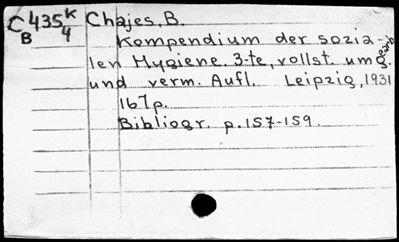 C 435 K Chajes, B.
B 4 Kompendium der sozia-
len Hygiene. 3-te, vollst. umg.
und verm. Aufl. Leipzig, 1931
167p.
Bibliogr. p.157-159.